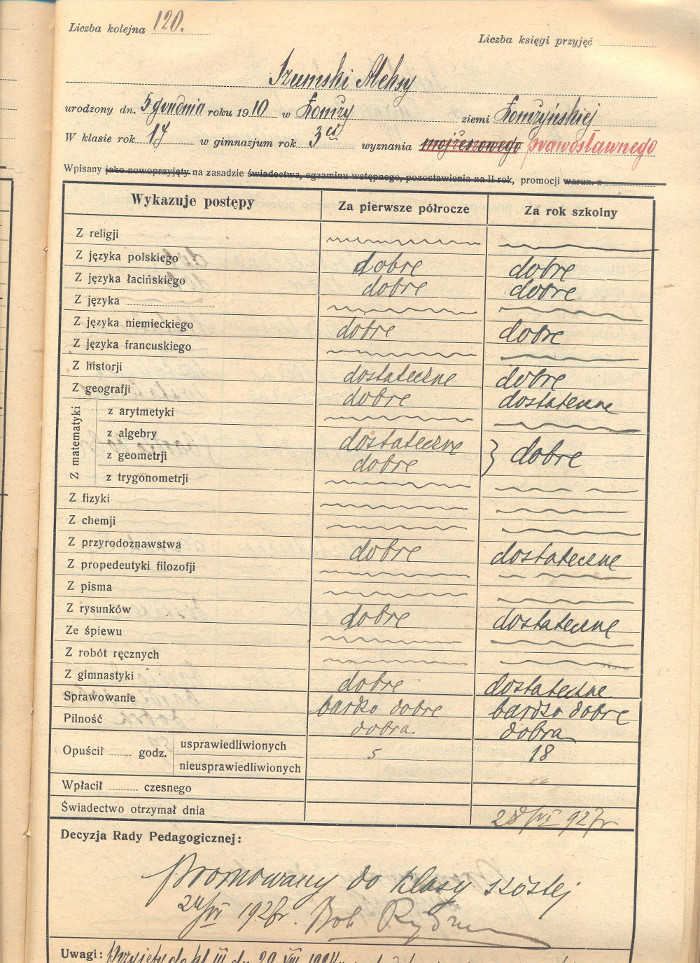 Liczba kolejna 120.
Liczba księgi przyjęć
Szumski Aleksy
urodzony dn. 5 grudnia roku 1910 w Łomży ziemi Łomżyńskiej
W klasie rok 1y w gimnazjum rok 3ci wyznania mojżeszowego prawosławnego
Wpisany jako nowoprzyjęty na zasadzie świadectwa, egzaminu wstępnego, pozostawienia na II rok, promocji warun. z
Wykazuje postępy Za pierwsze półrocze Za rok szkolny
Z religji
Z języka polskiego dobre dobre
Z języka łacińskiego dobre dobre
Z języka
Z języka niemieckiego dobre dobre
Z języka francuskiego
Z historji dostateczne dobre
Z geografji dobre dostateczne
Z matematyki
z arytmetyki
z algebry dostateczne
z geometrji dobre } dobre
z trygonometrji
Z fizyki
Z chemji
Z przyrodoznawstwa dobre dostateczne
Z propedeutyki filozofji
Z pisma
Z rysunków dobre dostateczne
Ze śpiewu
Z robót ręcznych
Z gimnastyki dobre dostateczne
Sprawowanie bardzo dobre bardzo dobre
Pilność dobra dobra
Opuścił godz. usprawiedliwionych 5 18
nieusprawiedliwionych
Wpłacił czesnego
Świadectwo otrzymał dnia 28/VI 927r
Decyzja Rady Pedagogicznej:
Promowany do klasy szóstej
/VI 1927r.
Uwagi: Przyjęty do kl III dn 20 VIII 1924